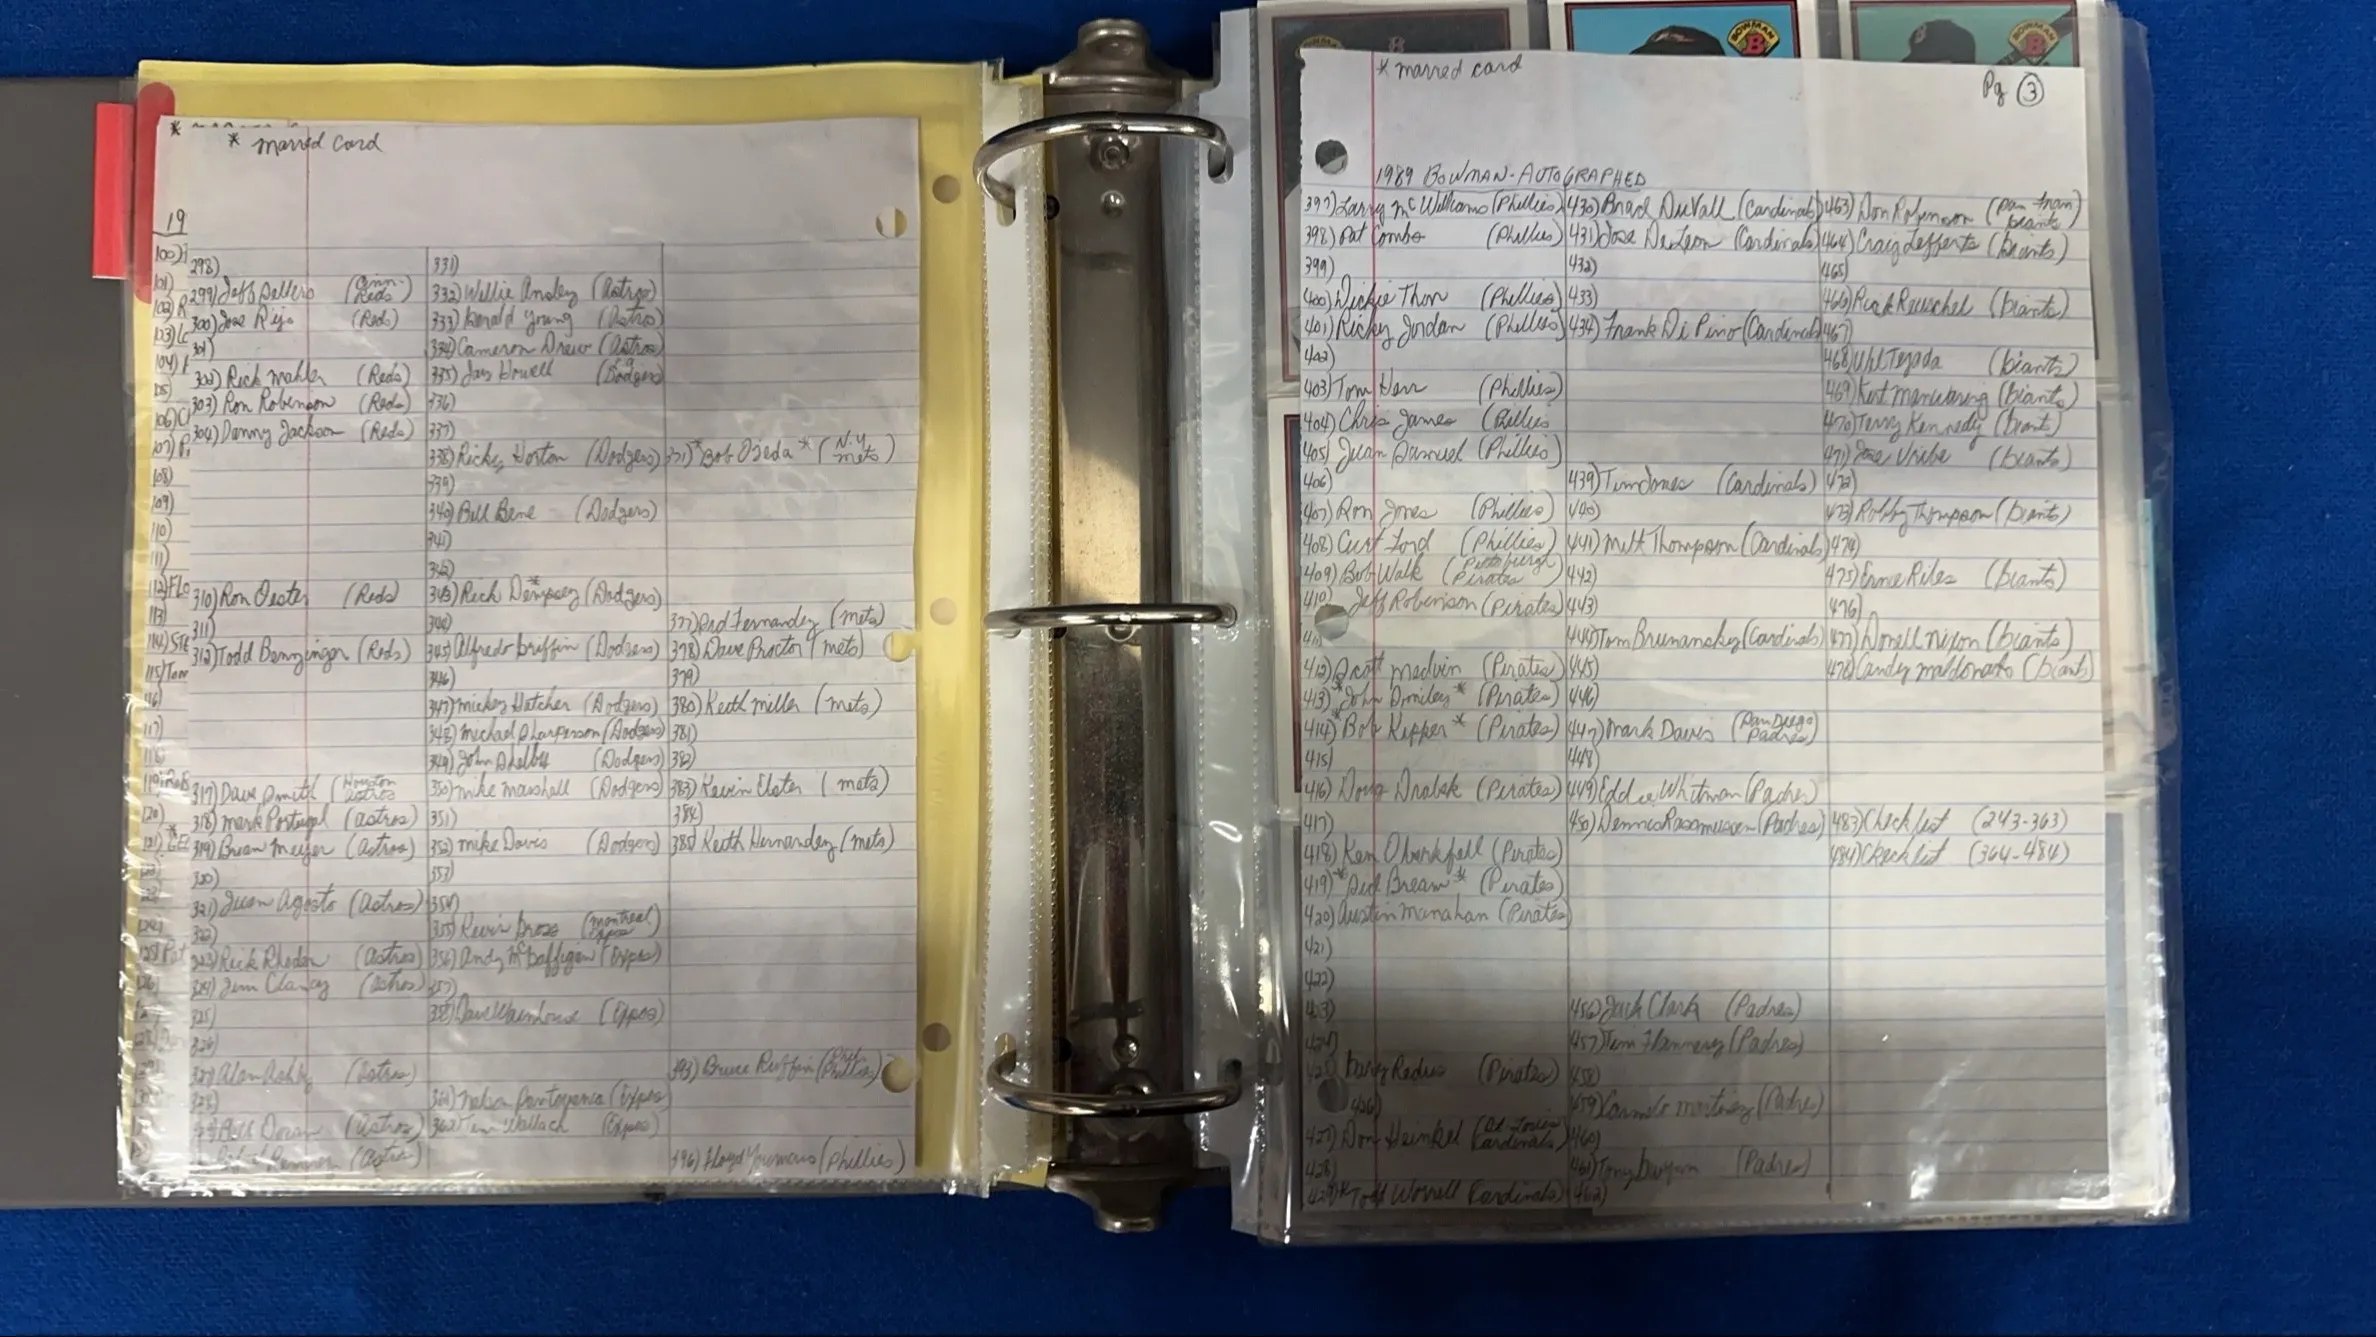 * marred card
19
298)
299) Jeff Sellers (Cinn- Reds)
300) Jose Rijo (Reds)
301)
302) Rick Mahler (Reds)
303) Ron Robinson (Reds)
304) Danny Jackson (Reds)
310) Ron Oester (Reds)
311)
312) Todd Benzinger (Reds)
317) Dave Smith (Houston Astros
318) Mark Portugal (Astros)
319) Brian Meyer (Astros)
320)
321) Juan Agosto (Astros)
322)
323) Rick Rhoden (Astros)
324) Jim Clancy (Astros)
325
326)
327) Alan Ashby (Astros)
328)
Bill Doran (Astros)
(Astros)
331)
332) Willie Ansley (Astros)
333) Gerald Young (Astros)
334) Cameron Drew (Astros)
335) Jay Howell (LA Dodgers)
336)
337)
338) Ricky Horton (Dodgers)
339)
340) Bill Bene (Dodgers)
341)
342)
343) Rick Dempsey* (Dodgers)
344)
345) Alfredo Griffin (Dodgers)
346)
347) Mickey Hatcher (Dodgers)
348) Michael Sharperson (Dodgers)
349) John Shelby (Dodgers)
350) Mike Marshall (Dodgers)
351)
352) Mike Davis (Dodgers)
353)
354)
355) Kevin Gross (Montreal Expos)
356) Andy McGaffigan (Expos)
357)
358) Dave Wainhouse (Expos)
361) Nelson Santovenia (Expos)
362) Tim Wallach (Expos)
371) *Bob Ojeda * (N.Y. Mets)
377) Sid Fernandez (Mets)
378) Dave Proctor (Mets)
379)
380) Keith Miller (Mets)
381)
382)
383) Kevin Elster (Mets)
384)
385) Keith Hernandez (Mets)
393) Bruce Ruffin (Phil Phillies)
396) Floyd Youmans (Phillies)
* marred card
Pg 3
1989 BOWMAN-AUTOGRAPHED
397) Larry McWilliams (Phillies)
398) Pat Combs (Phillies)
399)
400) Dickie Thon (Phillies)
401) Ricky Jordan (Phillies)
402)
403) Tom Herr (Phillies)
404) Chris James (Phillies
405) Juan Samuel (Phillies)
406)
407) Ron Jones (Phillies)
408) Curt Ford (Phillies)
409) Bob Walk (Pittsburgh Pirates
410) Jeff Robinson (Pirates)
411)
412) Scott Medvin (Pirates)
413) *John Smiley* (Pirates)
414) *Bob Kipper* (Pirates)
415)
416) Doug Drabek (Pirates)
417)
418) Ken Oberkfell (Pirates)
419) *Sid Bream* (Pirates)
420) Austin Manahan (Pirates)
421)
422)
423)
424)
425) Gary Redus (Pirates)
426)
427) Don Heinkel (St. Louis Cardinals)
428)
429) *Todd Worrell (Cardinals)
430) Brad DuVall (Cardinals)
431) Jose DeLeon (Cardinals)
432)
433)
434) Frank DiPino (Cardinals)
439) Tim Jones (Cardinals)
440)
441) Milt Thompson (Cardinals)
442)
443)
444) Tom Brunansky (Cardinals)
445)
446)
447) Mark Davis (San Diego Padres)
448)
449) Eddie Whitman (Padres)
450) Dennis Rasmussen (Padres)
456) Jack Clark (Padres)
457) Tim Flannery (Padres)
458)
459) Carmelo Martinez (Padres)
460)
461) Tony Gwynn (Padres)
462)
463) Don Robinson (San Fran) Giants
464) Craig Lefferts (Giants)
465)
466) Rick Reuschel (Giants)
467)
468) Wil Tejada (Giants)
469) Kirt Manwaring (Giants)
470) Terry Kennedy (Giants)
471) Jose Uribe (Giants)
472)
473) Robby Thompson (Giants)
474)
475) Ernie Riles (Giants)
476)
477) Donell Nixon (Giants)
478) Candy Maldonado (Giants)
483) Checklist (243-363)
484) Checklist (364-484)
100)
101)
102) R
103) Le
104)
105)
106) Cl
107) P
108)
109)
110)
111)
112) Flo
113)
114) STE
115) Tom
116)
117)
118)
119)
120)
121)
BOWMAN
B
BOWMAN
B